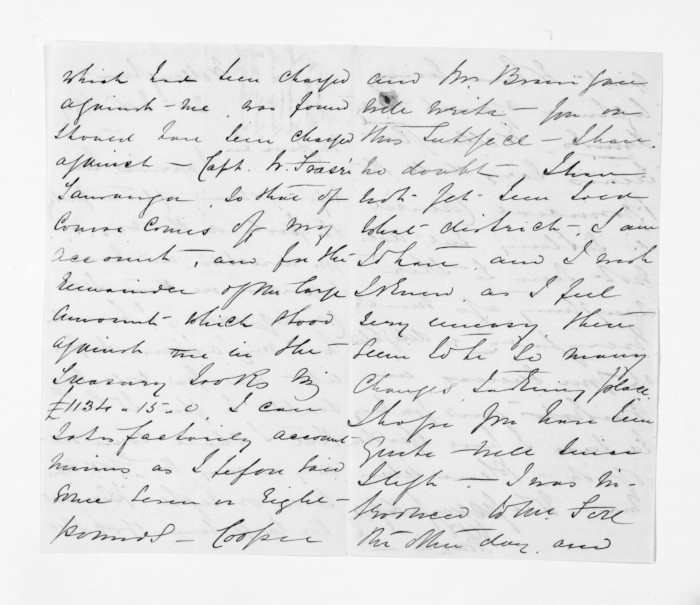 which had been charged
against me was found
should have been charged
against - Capt. W. Fraser
Tauranga, so that of
course comes off my
account, and for the
remainder of the large
amount which stood
against me in the
Treasury Books viz
£1134-15-0. I can
satisfactorily account
minus as I before said
some seven or eight
pounds - Cooper
and Mr Branigan
will write - you on
this subject - I have
no doubt, I have
not yet been told
what district - I am
to have and I wish
I knew as I feel
very uneasy there
seem to be so many
changes taking place.
I hope you have been
quite well since
I left - I was in-
troduced to Mr
the other day and